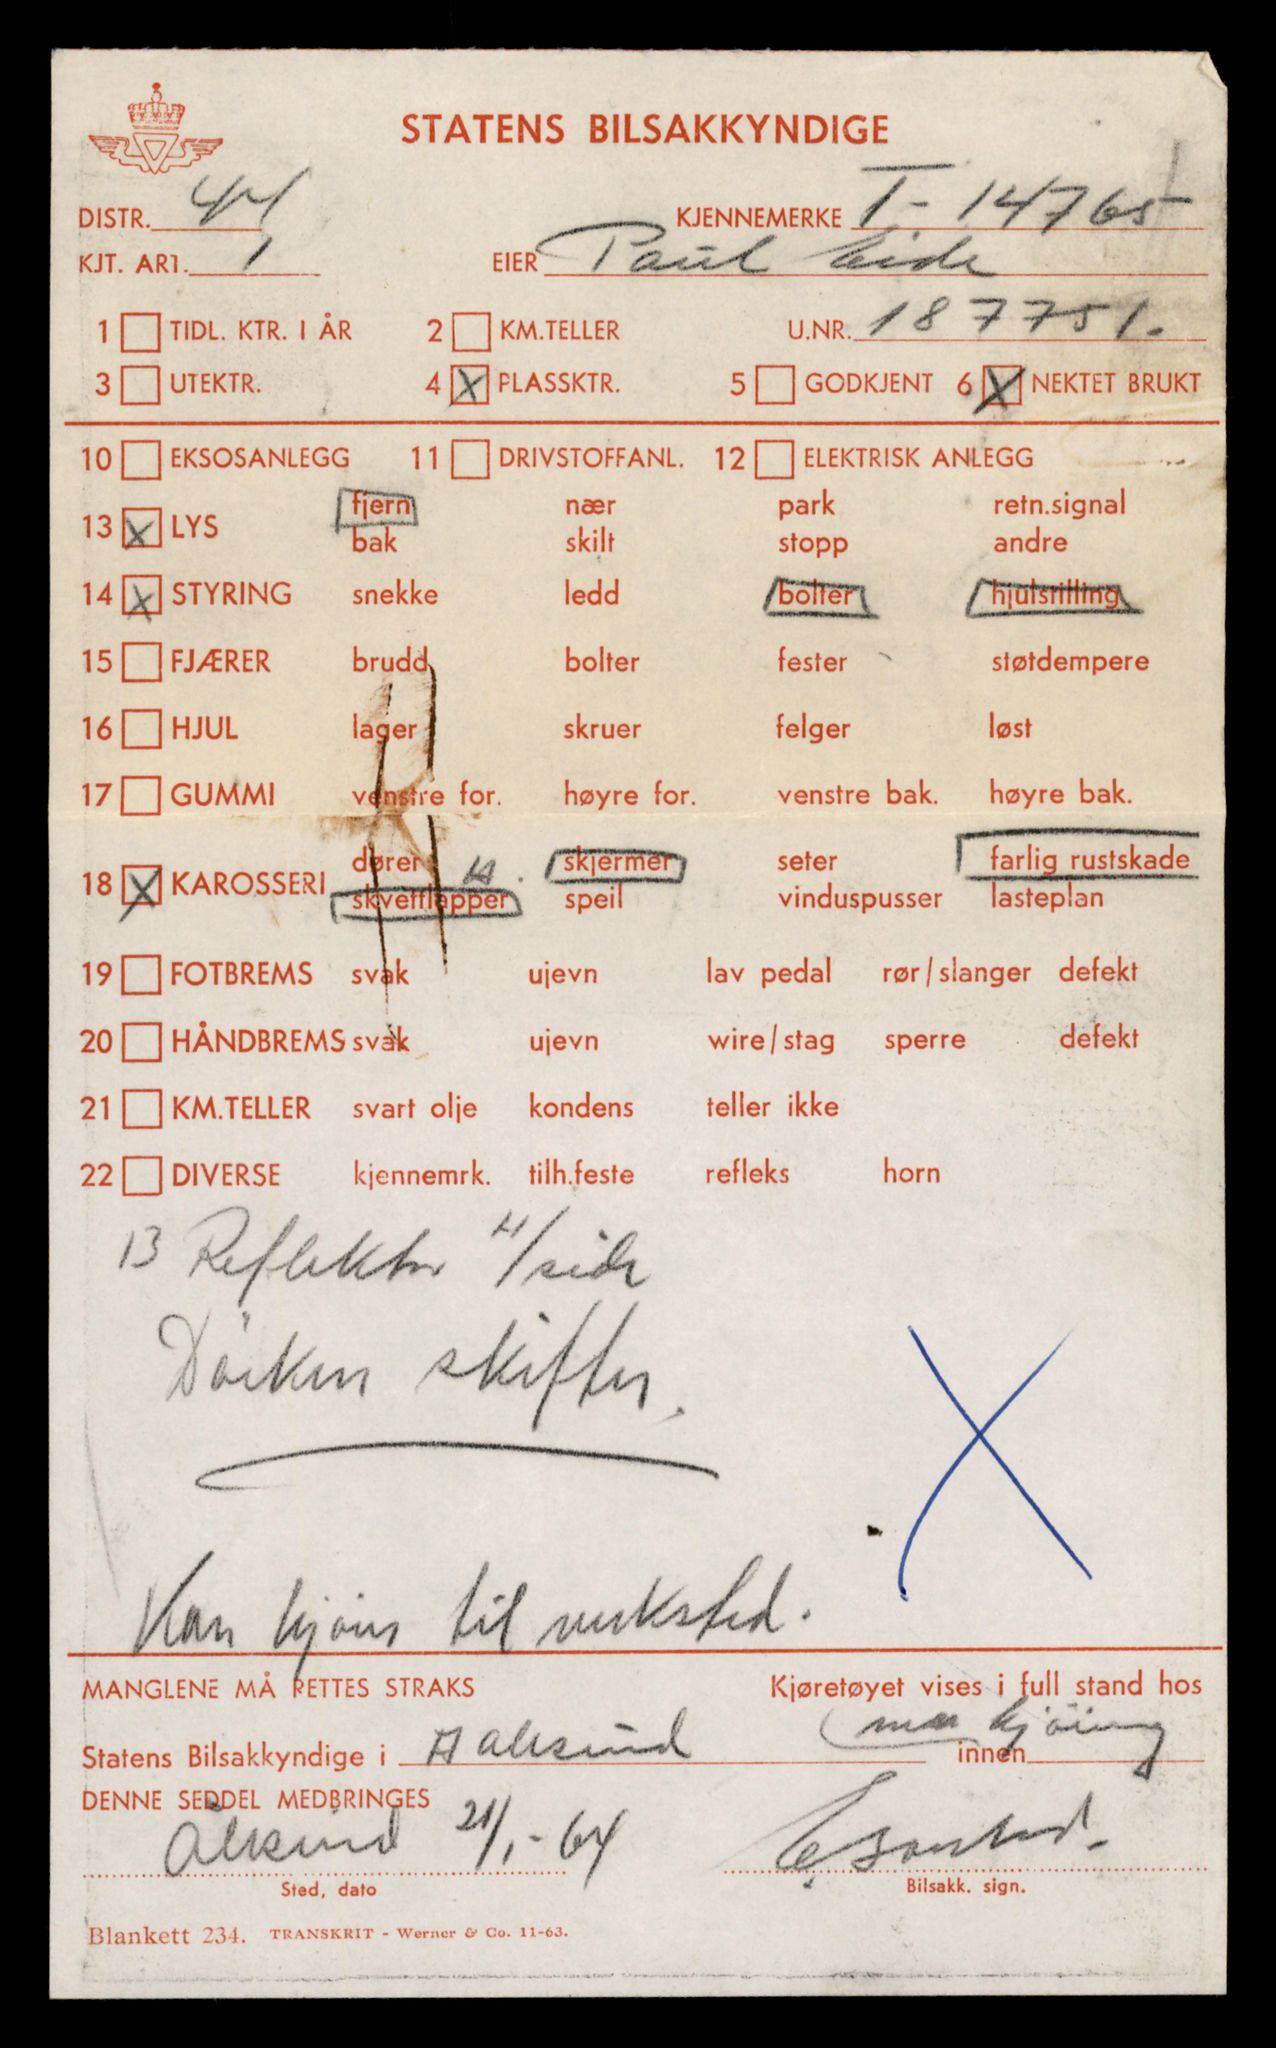 STATENS BILSAKKYNDIGE
DISTR. 44 KJENNEMERKE T-14765
KJT. ART. 1 EIER Paul Eide
1 TIDL. KTR. I ÅR 2 KM.TELLER U.NR. 187751.
3 UTEKTR. 4 X PLASSKTR. 5 GODKJENT 6 X NEKTET BRUKT
10 EKSOSANLEGG 11 DRIVSTOFFANL. 12 ELEKTRISK ANLEGG
13 X LYS fjern nær park retn.signal
bak skilt stopp andre
14 X STYRING snekke ledd bolter hjulstilling
15 FJÆRER brudd bolter fester støtdempere
16 HJUL lager skruer felger løst
17 GUMMI venstre for. høyre for. venstre bak. høyre bak.
18 X KAROSSERI dører H. skjermer seter farlig rustskade
skvettlapper speil vinduspusser lasteplan
19 FOTBREMS svak ujevn lav pedal rør/slanger defekt
20 HÅNDBREMS svak ujevn wire/stag sperre defekt
21 KM.TELLER svart olje kondens teller ikke
22 DIVERSE kjennemrk. tilh.feste refleks horn
13 Reflektor H/side
skiftes.
Kan kjøres til verksted.
MANGLENE MÅ RETTES STRAKS Kjøretøyet vises i full stand hos
Statens Bilsakkyndige i Aalesund innen før kjøring
DENNE SEDDEL MEDBRINGES
Ålesund 21/1-64
Sted, dato Bilsakk. sign.
Blankett 234. TRANSKRIT - Werner & Co. 11-63.